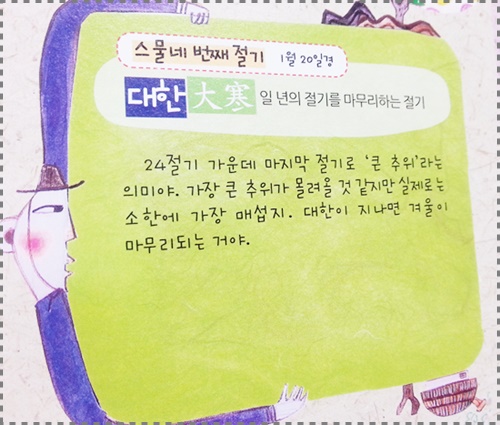 스물네 번째 절기 1월 20일경
대한 大寒 일 년의 절기를 마무리하는 절기
24절기 가운데 마지막 절기로 '큰 추위'라는
의미야. 가장 큰 추위가 몰려올 것 같지만 실제로는
소한에 가장 매섭지. 대한이 지나면 겨울이
마무리되는 거야.